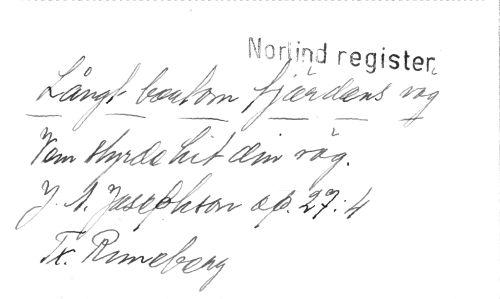 Norlind register.
Långt bortom fjärdens våg
Vem styrde hit din väg.
J. A. Josephson op. 27:4
Tx. Runeberg